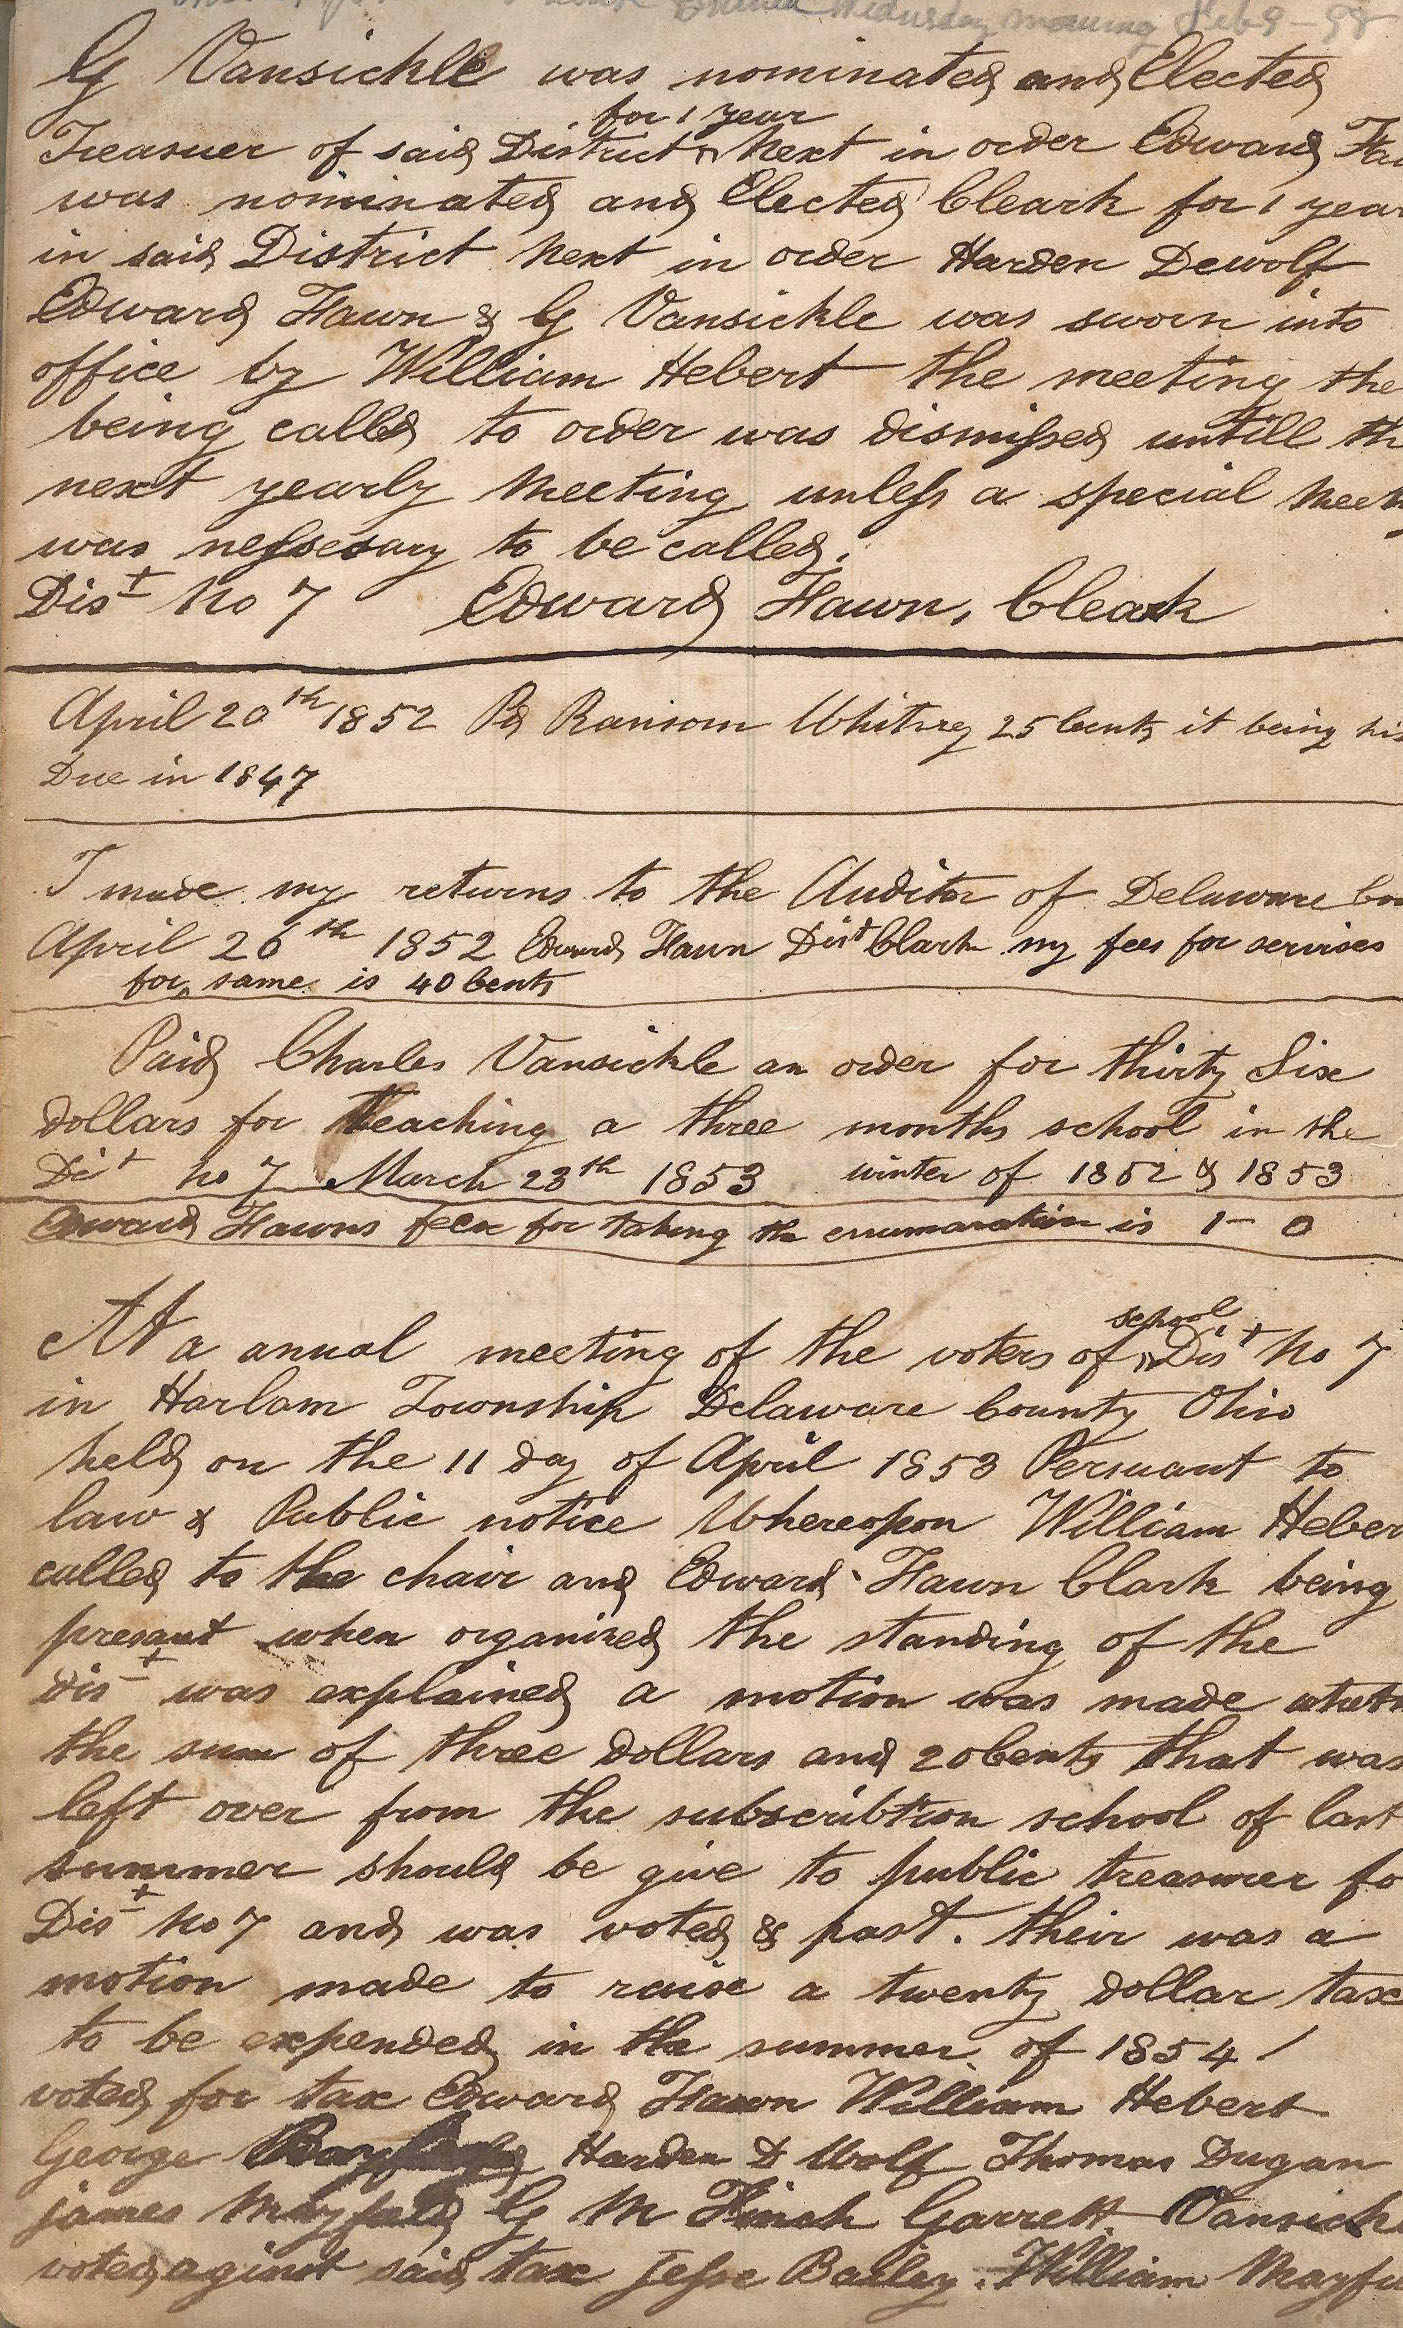 Wednesday morning Feb 9 - 98
G Vansickle was nominated and Elected
for 1 year
Treasuer of said District Next in order Edward
was nominated and Elected Cleark for 1 year
in said District Next in order Harden Dewolf
Edward Hawn & G Vansickle was sworn into
office by William Hebert the meeting the
being called to order was dismissed untill th
next yearly Meeting unless a special Meet
was nessesary to be called.
Dist No 7 Edward Hawn, Cleark
April 20th 1852 Pd Ransom Whitney 25 Cents it being his
Due in 1847
I made my returns to the Auditor of Delaware Co
April 26th 1852 Edward Hawn Dist Clark my fees for servises
for same is 40 Cents
Paid Charles Vansickle an order for thirty Six
Dollars for Teaching a three months school in the
Dit No 7 March 28th 1853 winter of 1852 & 1853
Edward Hawns feese for taking the enumaration is 1 - 0
At a anual meeting of the voters of school Dist No 7
in Harlam Township Delaware County Ohio
held on the 11 day of April 1853 Persuant to
law & Public notice Whereopon William Heber
called to the chair and Edward Hawn Clark being
presant when organized the standing of the
Dist was explained a motion was made
the sum of three Dollars and 20 Cents that was
left over from the subscribtion school of last
summer should be give to public treasurer fo
Dist No 7 and was voted & past. their was a
motion made to raise a twenty dollar tax
to be expended in the summer of 1854 /
voted for tax Edward Hawn William Hebert
George Harden D Wolf Thomas Dugan
james Mayfield G M Finch Garrett Vansick
voted aginst said tax Jesse Bailey. William Mayfi